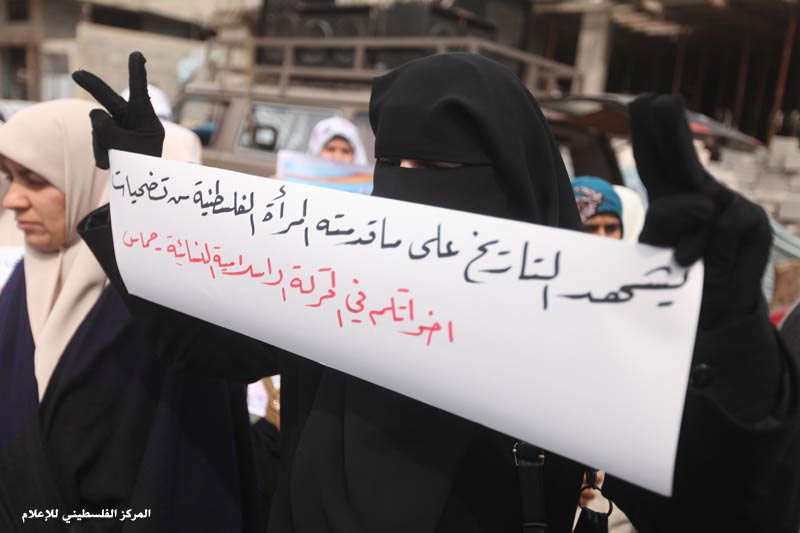 يشهد التاريخ على ما قدمته المرأة الفلسطينية من تضحيات
اخواتكم في الحركة الاسلامية النسائية - حماس
المركز الفلسطيني للإعلام